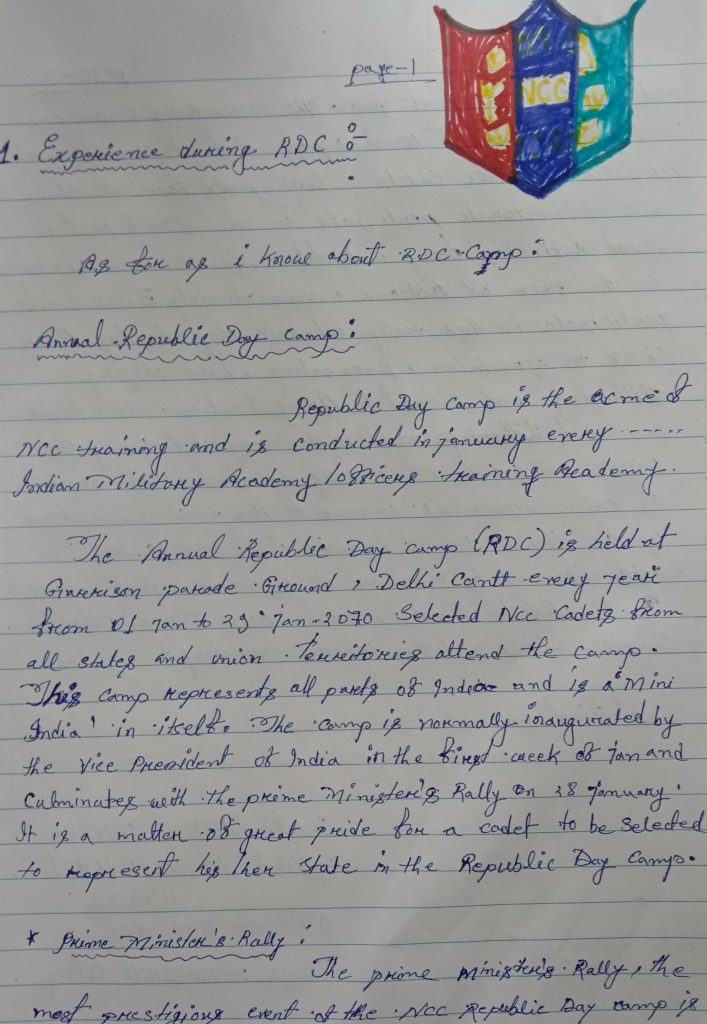 page-1
NCC
1. Experience during RDC :-
As for as i know about RDC-Camp :
Annual Republic Day Camp :
Republic Day Camp is the acme of
NCC training and is conducted in january every ......
Indian Military Academy /officers training Academy.
The Annual Republic Day Camp (RDC) is held at
Garrison parade Ground, Delhi Cantt every year
from 01 Jan to 29 Jan - 2070 Selected Ncc Cadets from
all states and union Territories attend the camp.
This camp represents all parts of India and is a 'Mini
India' in itself. The camp is normally inaugurated by
the Vice President of India in the first week of Jan and
Culminates with the prime Minister's Rally on 28 January.
It is a matter of great pride for a cadet to be selected
to represent his /her State in the Republic Day Camp.
* Prime Minister's Rally :
The prime Minister's Rally, the
most prestigious event of the NCC Republic Day camp is